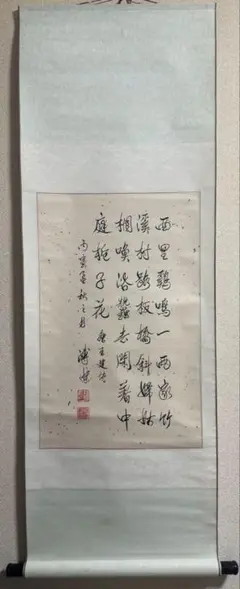 雨里鷄鳴一兩家竹
溪村路板橋斜婦姑
相喚浴蠶去閑着中
庭栀子花 唐王建詩
丙寅年秋之月 溥傑